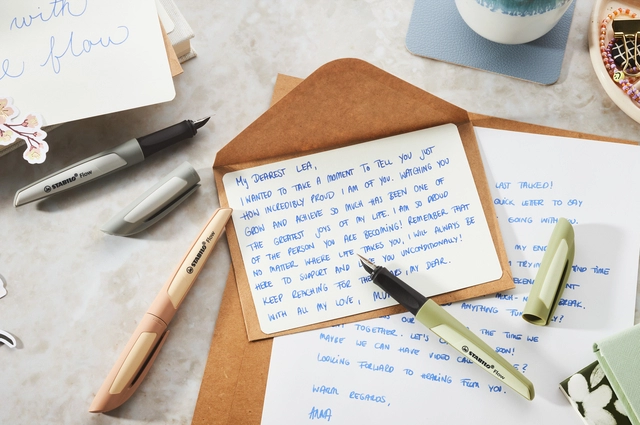 with
flow
STABILO flow
STABILO flow
My DEAREST LEA,
I WANTED TO TAKE A MOMENT TO TELL YOU JUST
HOW INCREDIBLY PROUD I AM OF YOU. WATCHING YOU
GROW AND ACHIEVE SO MUCH HAS BEEN ONE OF
THE GREATEST JOYS OF MY LIFE. I AM SO PROUD
OF THE PERSON YOU ARE BECOMING! REMEMBER THAT
NO MATTER WHERE LIFE TAKES YOU, I WILL ALWAYS BE
HERE TO SUPPORT AND LOVE YOU UNCONDITIONALLY!
KEEP REACHING FOR THE STARS, MY DEAR.
WITH ALL MY LOVE, MUM
STABILO flow
LAST TALKED!
QUICK LETTER TO SAY
GOING WITH YOU.
MY
TIME
BREAK.
OUR THE TIME WE
TOGETHER. LET'S SOON!
MAYBE WE CAN HAVE VIDEO CALL ?
LOOKING FORWARD TO HEARING FROM YOU.
WARM REGARDS,
ANNA